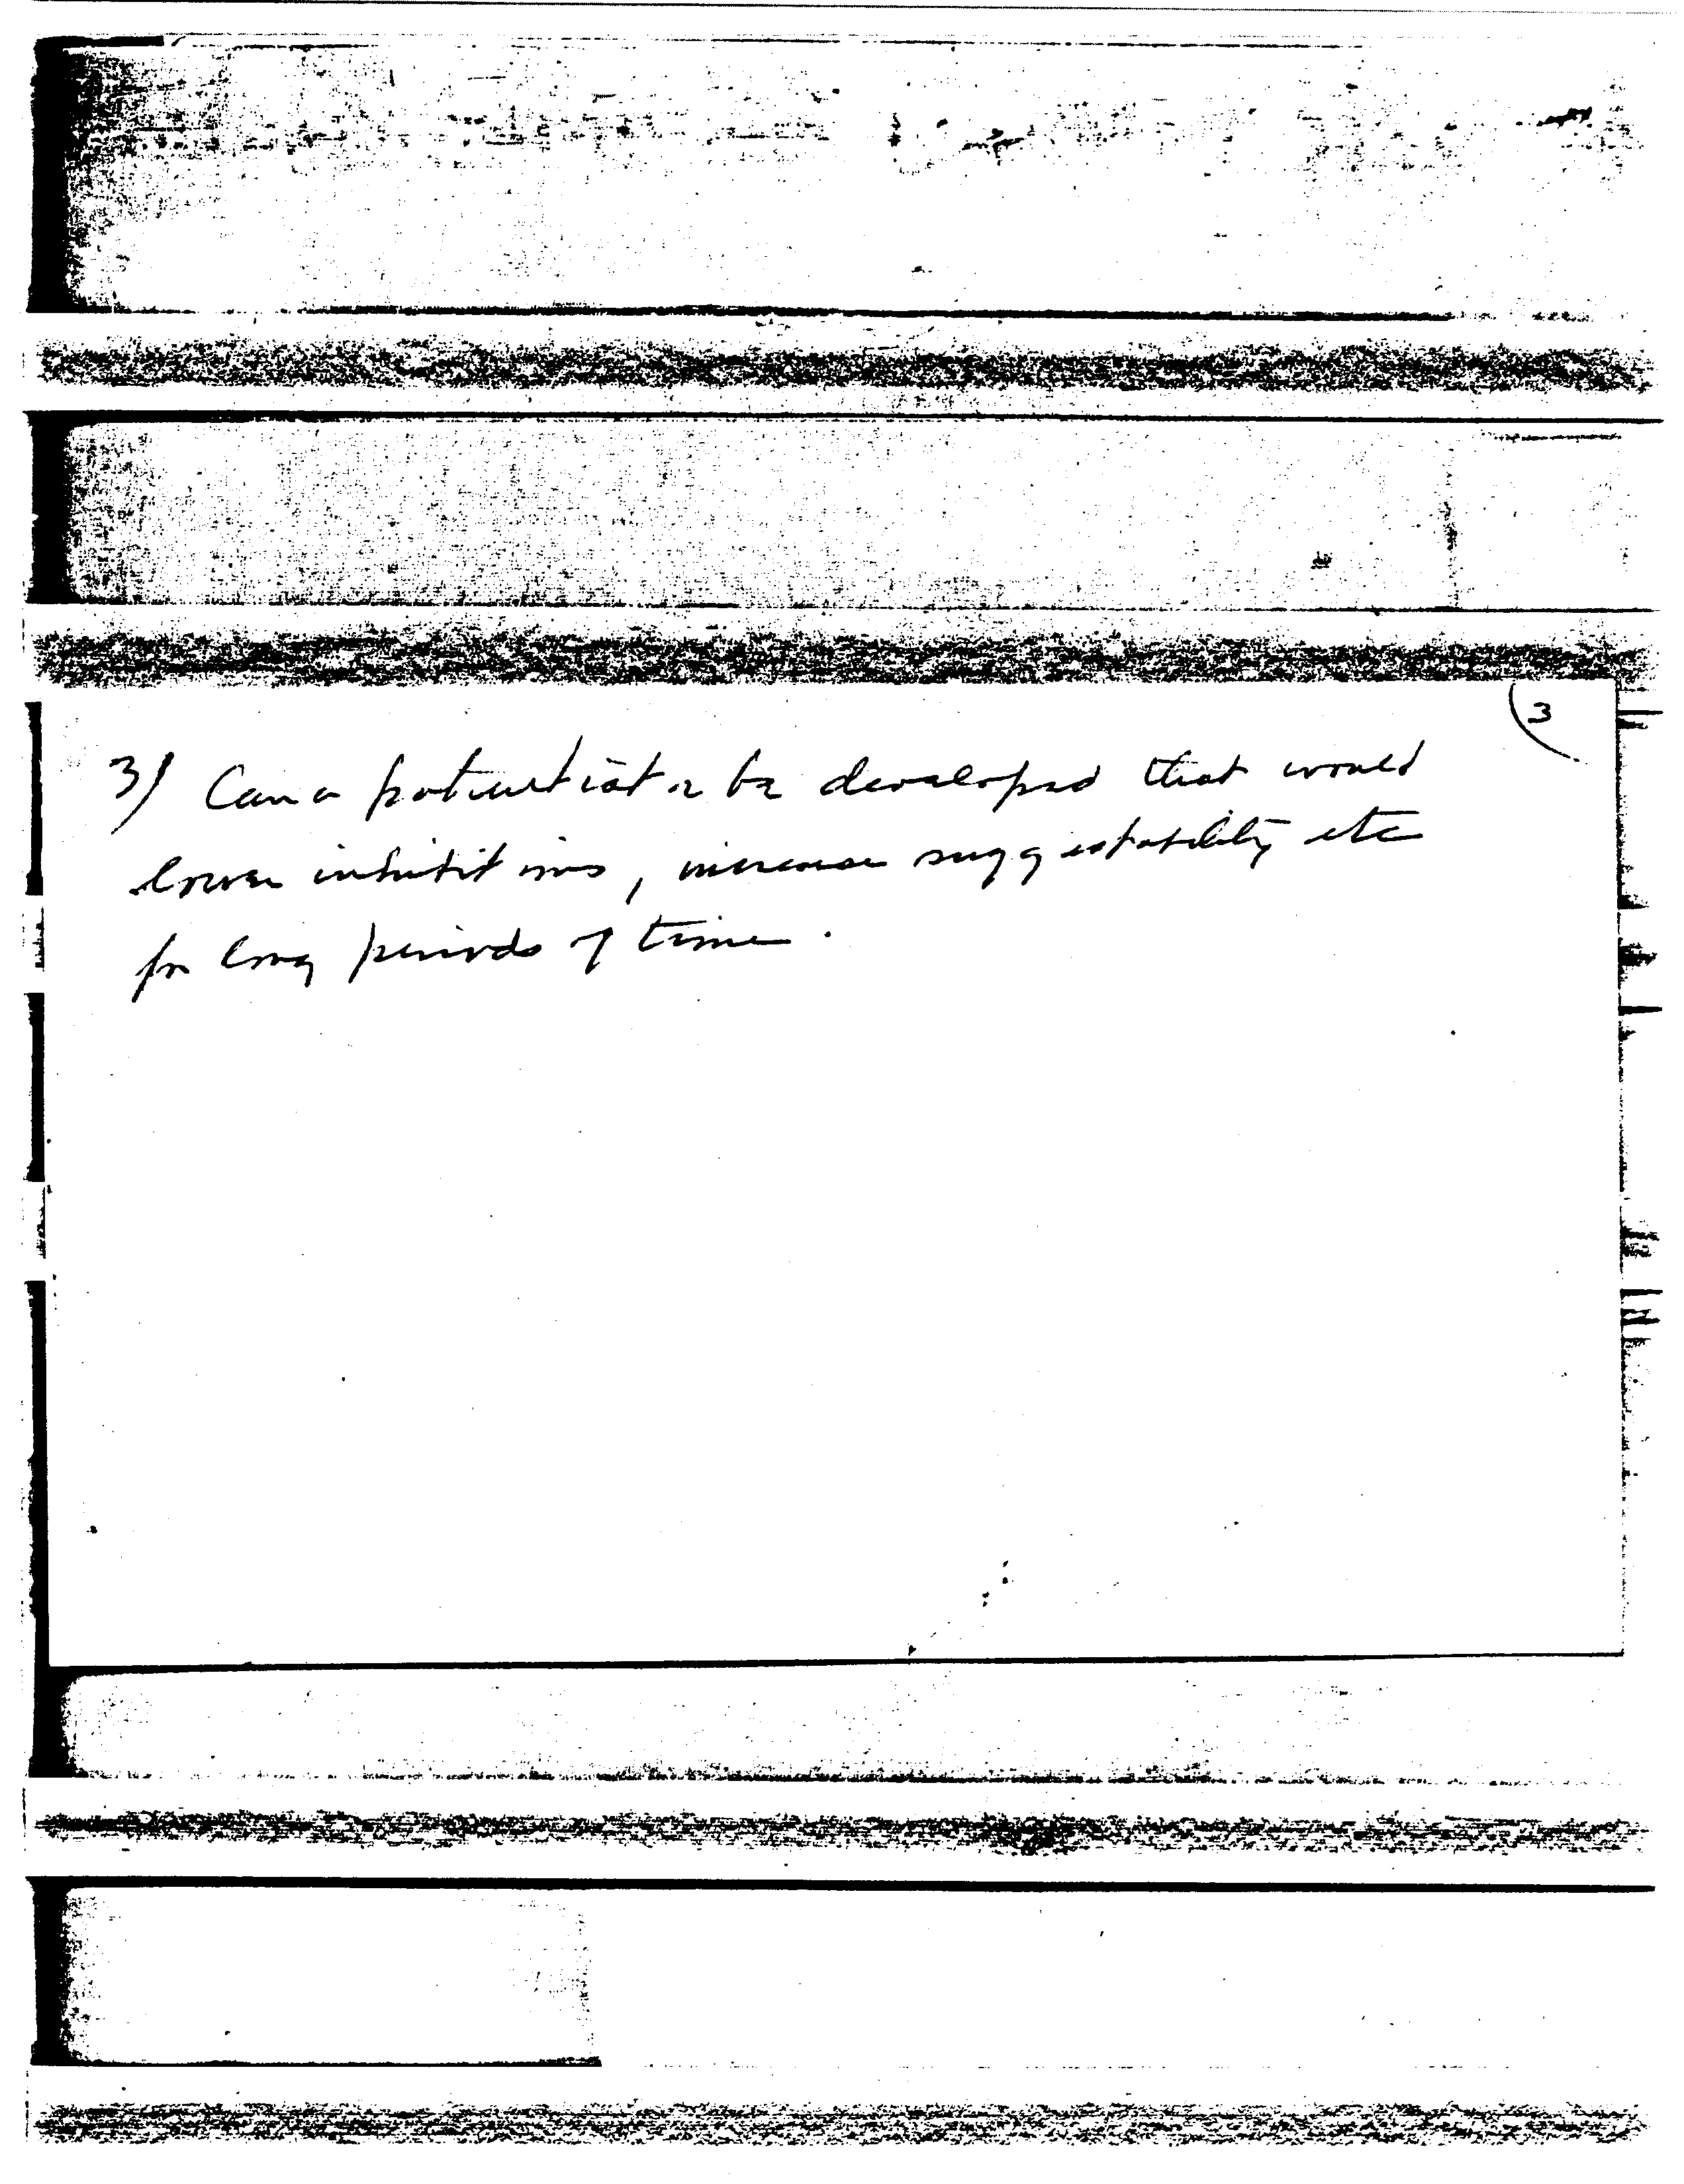 3
3) Can a potentiator be developed that would
lower inhibitions, increase suggestability etc
for long periods of time.